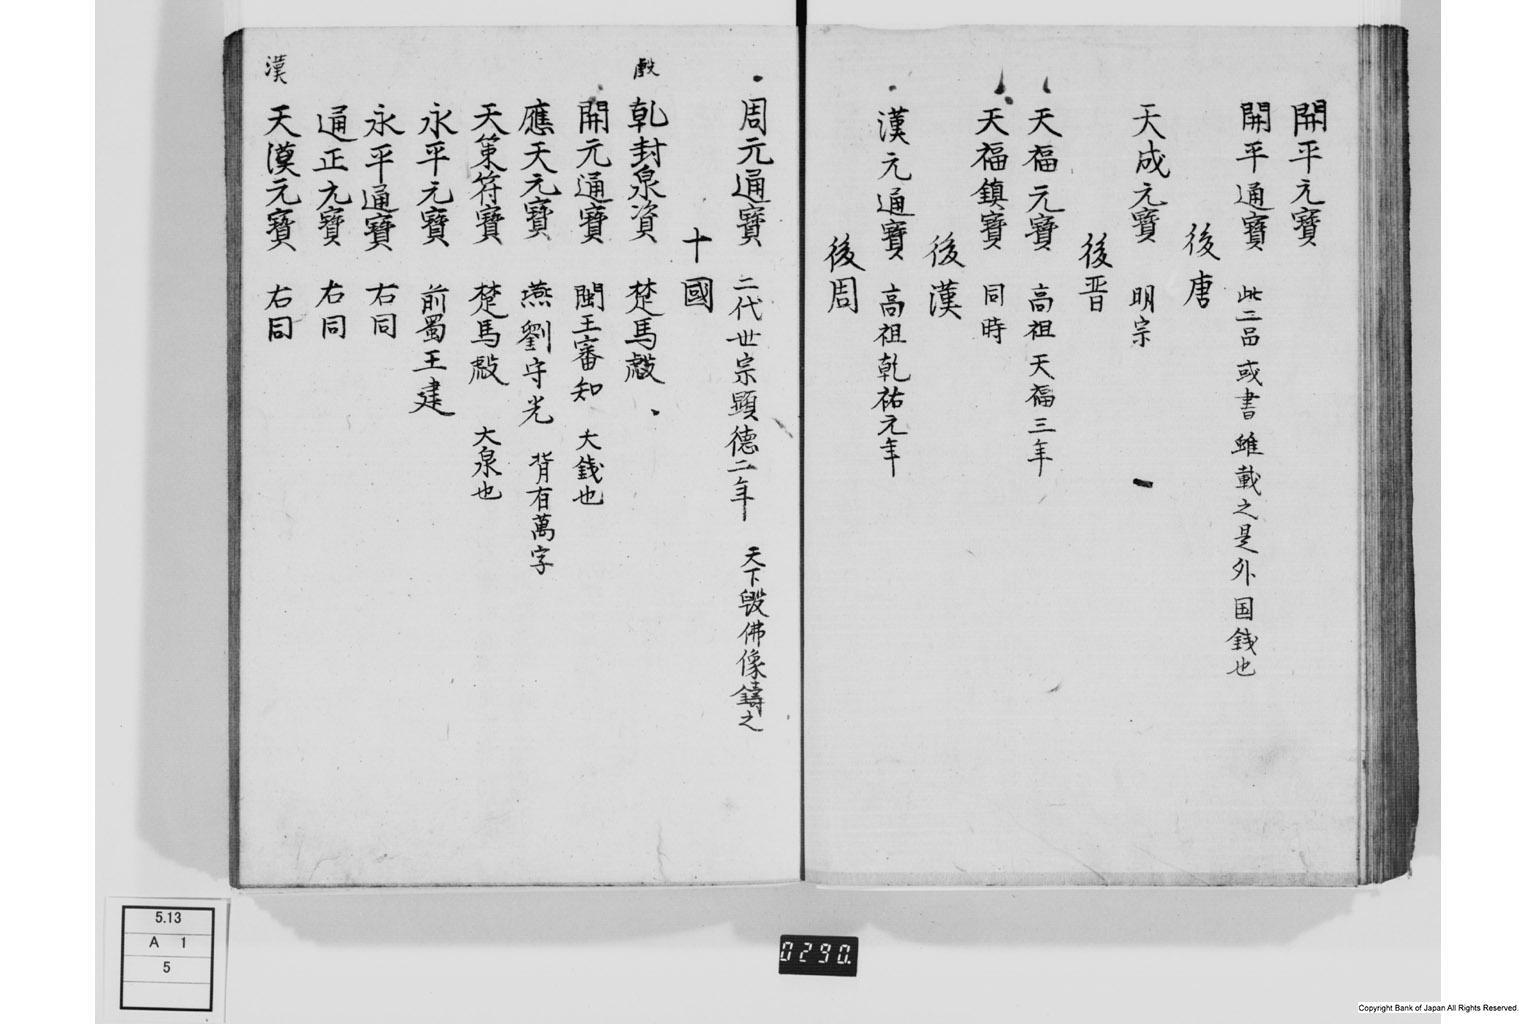 開平元寳
開平通寳 此二品或書雖載之是外国銭也
後唐
天成元寳 明宗
後晋
天福元寳 高祖天福三年
天福鎮寳 同時
後漢
漢元通寳 高祖乾祐元年
後周
周元通寳 二代世宗顕徳二年 天下毀佛像鑄之
十國
乾封泉資 楚馬殷
開元通寳 閩王審知 大銭也
應天元寳 燕劉守光 背有萬字
天策符寳 楚馬殷 大泉也
永平元寳 前蜀王建
永平通寳 右同
通正元寳 右同
漢
天漢元寳 右同
5.13
A 1
5
0290.
Copyright Bank of Japan All Rights Reserved.